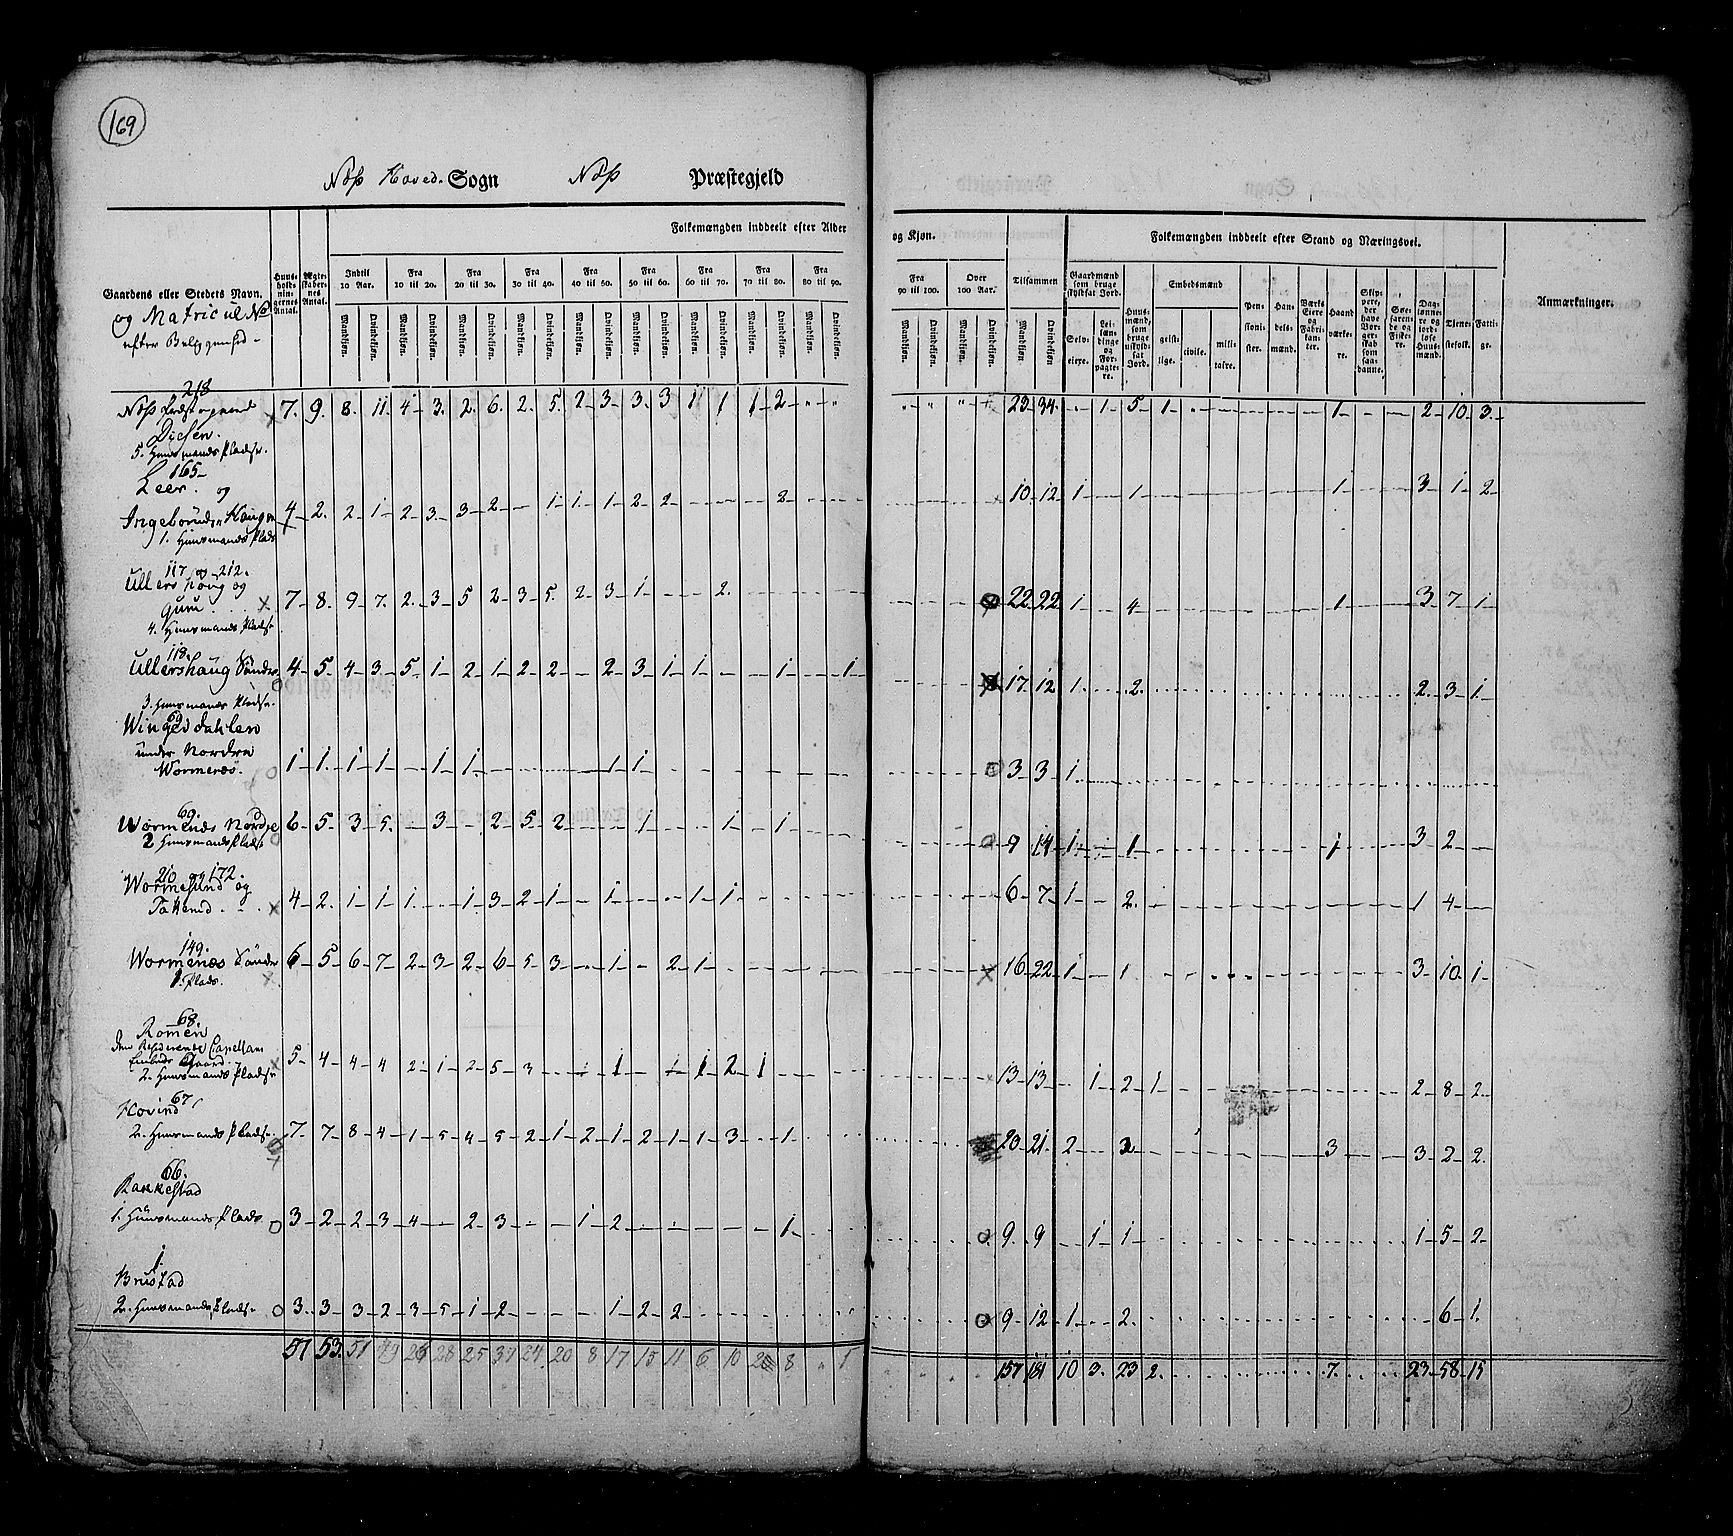 169
Næs Hoved- Sogn Næs Præstegjeld
Gaardens eller Stedets Navn.
og Matricul No
efter Beliggenhed -
Huus-holdnin-gernes Antal.
Ægteskaber-nes Antal.
Folkemængden inddeelt efter Alder og Kjøn.
Indtil 10 Aar. Fra 10 til 20. Fra 20 til 30. Fra 30 til 40. Fra 40 til 50. Fra 50 til 60. Fra 60 til 70. Fra 70 til 80. Fra 80 til 90. Fra 90 til 100. Over 100 Aar. Tilsammen
Mandkjøn. Qvindekjøn.
Folkemængden inddeelt efter Stand og Næringsvei.
Gaardmænd som bruge skyldsat Jord.
Selveiere. Leilændinge og Forpagtere.
Huusmænd, som bruge uskyldsat Jord.
Embedsmænd
geistlige. civile. militaire.
Pensionister.
Handelsmænd.
Værks Eiere og Fabrikanter.
Haandværkere.
Skippere, der have Borgerskab som saadanne.
Søefarende og Fiskere.
Daglønnere og jordløse Huusmænd.
Tjenestefolk.
Fattige.
Anmærkninger.
218
Næs Præstegaard 7. 9. 8. 11. 4. 3. 2. 6. 2. 5. 2 3 3. 3 1 1 1 2 29 34. 1 5 1 1 2 10 3
Disen.
5. Huusmands Pladse.
165
Leer. og
Ingeboruds Haugen 4 2 2 1 2 3 3 2 1 1 1 2 2 2 10 12 1 1 1 3 1 2
1. Huusmands Plads
117 og 212.
Ullershoug og
7 8 9 7 2 3 5 2 3 5 2 3 1 2. 22 22 1 4 1 3 7 1
4. Huusmands Pladse
118.
Ullershaug Søndre 4 5 4 3 5 1 2 1 2 2 2 3 1 1 1 1 17 12 1 2 2 3 1
3. Huusmands Pladse.
Wingerdahlen
under Nordre
Wormenæs. 1 1 1 1 1 1 1 1 3 3 1
69.
Wormenæs Nordre 6 5 3 5 3 2 5 2 1 1 1 9 14 1 1 1 3 2
2 Huusmands Pladse
210 og 172.
Wormesund og 4 2 1 1 1 1 3 2 1 1 1 1 6 7 1 2 1 4
149.
Wormenæs Søndre 6 5 6 7 2 3 2 6 5 3 1 2 1 16 22 1 1 3 10 1
1. Plads.
68.
Romen
den residerende Capellans
Embeds Gaard.
2. Huusmands Pladse 5 4 4 4 2 1 2 5 3 1 1 1 1 2 1 13 13 1 2 1 2 8 2
67
Hovind
2. Huusmands Pladse 7 7 8 4 1 5 4 5 2 1 2 1 2 1 1 3 1 20 21 2 3 3 3 2 2
66.
Rakkestad
1. Huusmands Plads. 3 2 2 3 4 2 3 1 2 1 9 9 1 1 1 5 2
1.
Brustad
2. Huusmands Pladse 3 3 3 2 3 5 1 2 1 2 2 9 12 1 2 6 1
57 53. 51 49 26 28 25 37 24 20 8 17 15 11 6 10 2 8 1 157 181 10 3 23 2 7. 23 58 15